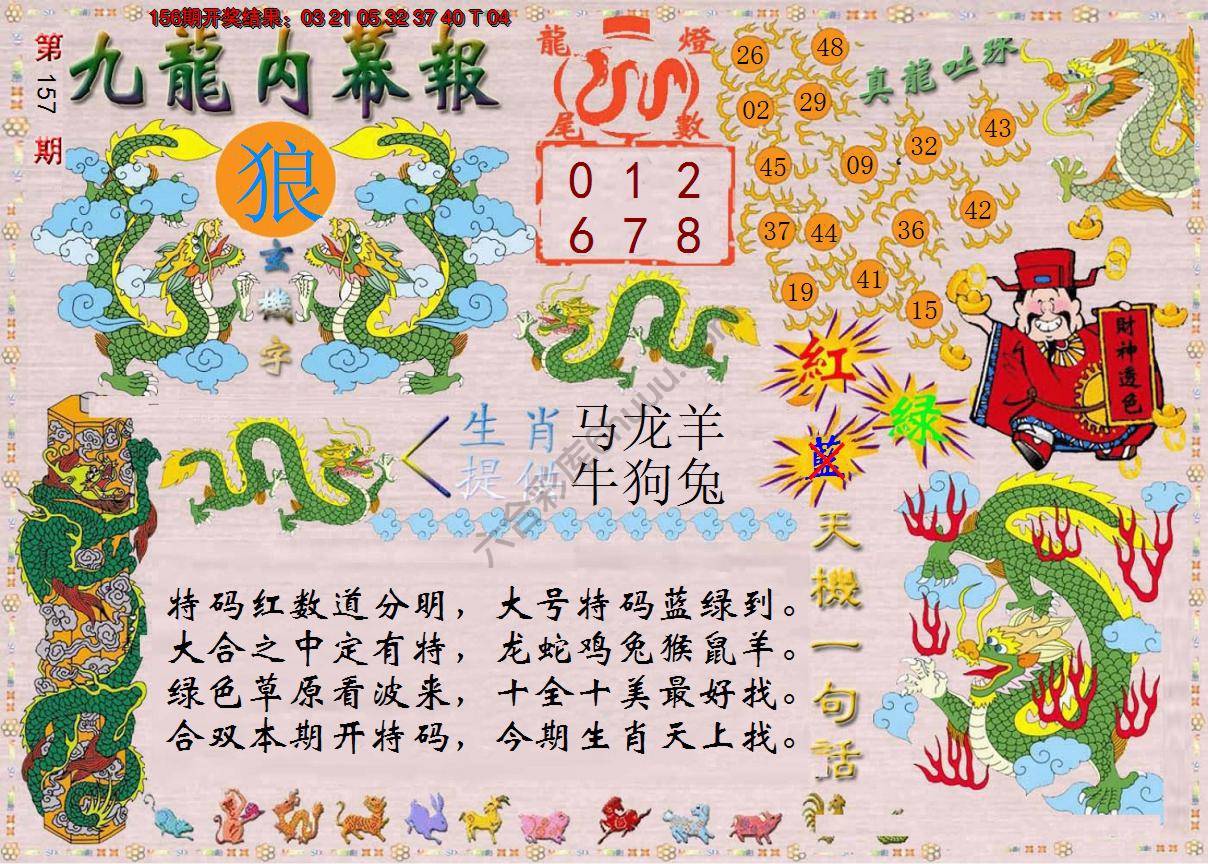 156期开奖结果：03 21 05 32 37 40 T 04
第157期
九龍内幕報
狼
玄機字
龍燈
尾數
0 1 2
6 7 8
真龍吐珠
26 48
02 29
45 09 32 43
37 44 36 42
19 41 15
財神透色
紅
綠
藍
生肖 马龙羊
提供 牛狗兔
天機一句話
特码红数道分明，大号特码蓝绿到。
大合之中定有特，龙蛇鸡兔猴鼠羊。
绿色草原看波来，十全十美最好找。
合双本期开特码，今期生肖天上找。